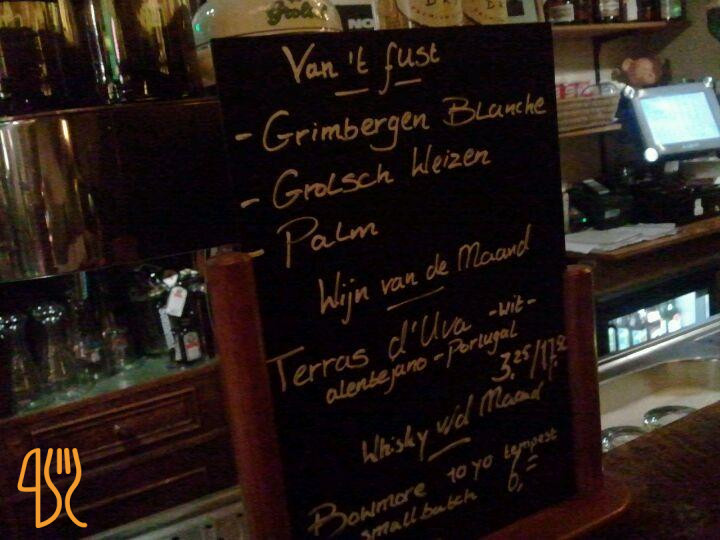 Grolsch
Van 't fust
- Grimbergen Blanche
- Grolsch Weizen
- Palm
Wijn van de Maand
Terras d'Uva - wit -
alentejano - Portugal
3.25/17.50
Whisky v/d Maand
Bowmore 10 yo tempest
small batch 6,=